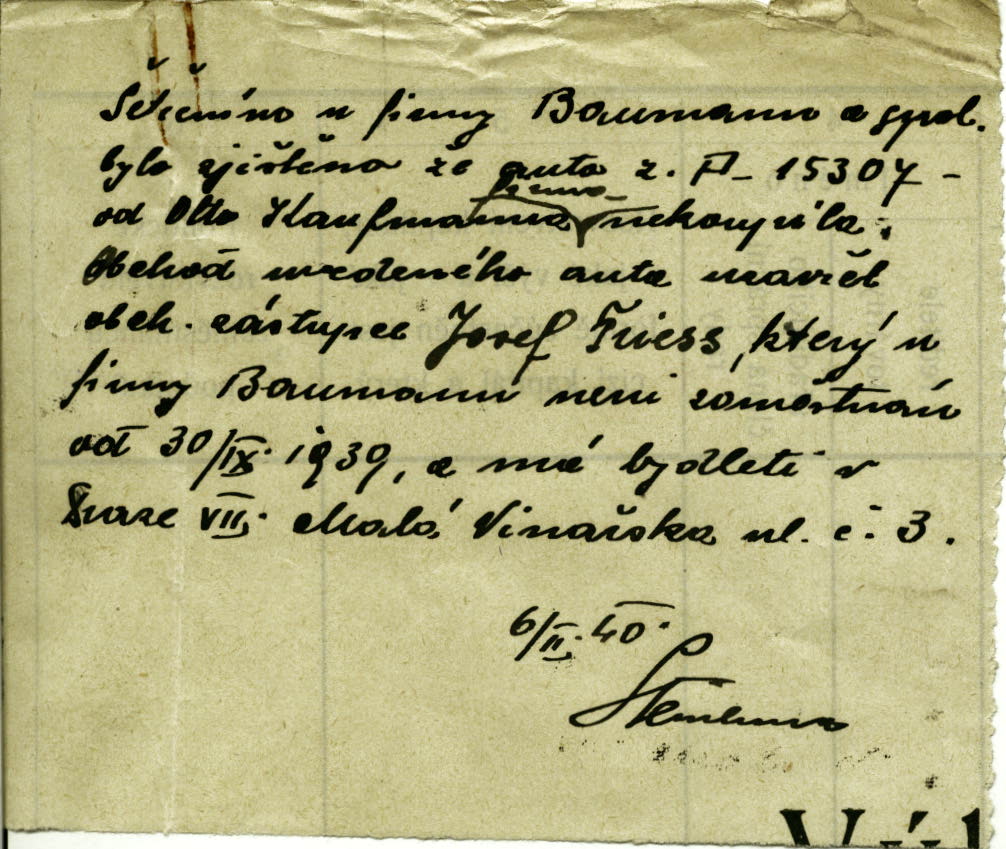 Šetřeníno u firmy Baumann a spol.
bylo zjištěno že auto z. P- 15307 -
firma
od Otto Kaufmanna nekoupila.
Obchod uvedeného auta uzavřel
obch. zástupce Josef Friess, který u
firmy Baumann neni zaměstnán
od 30/IX. 1939, a má bydleti v
Praze VII. Malá Vinařska ul. č. 3.
6/II. 40.